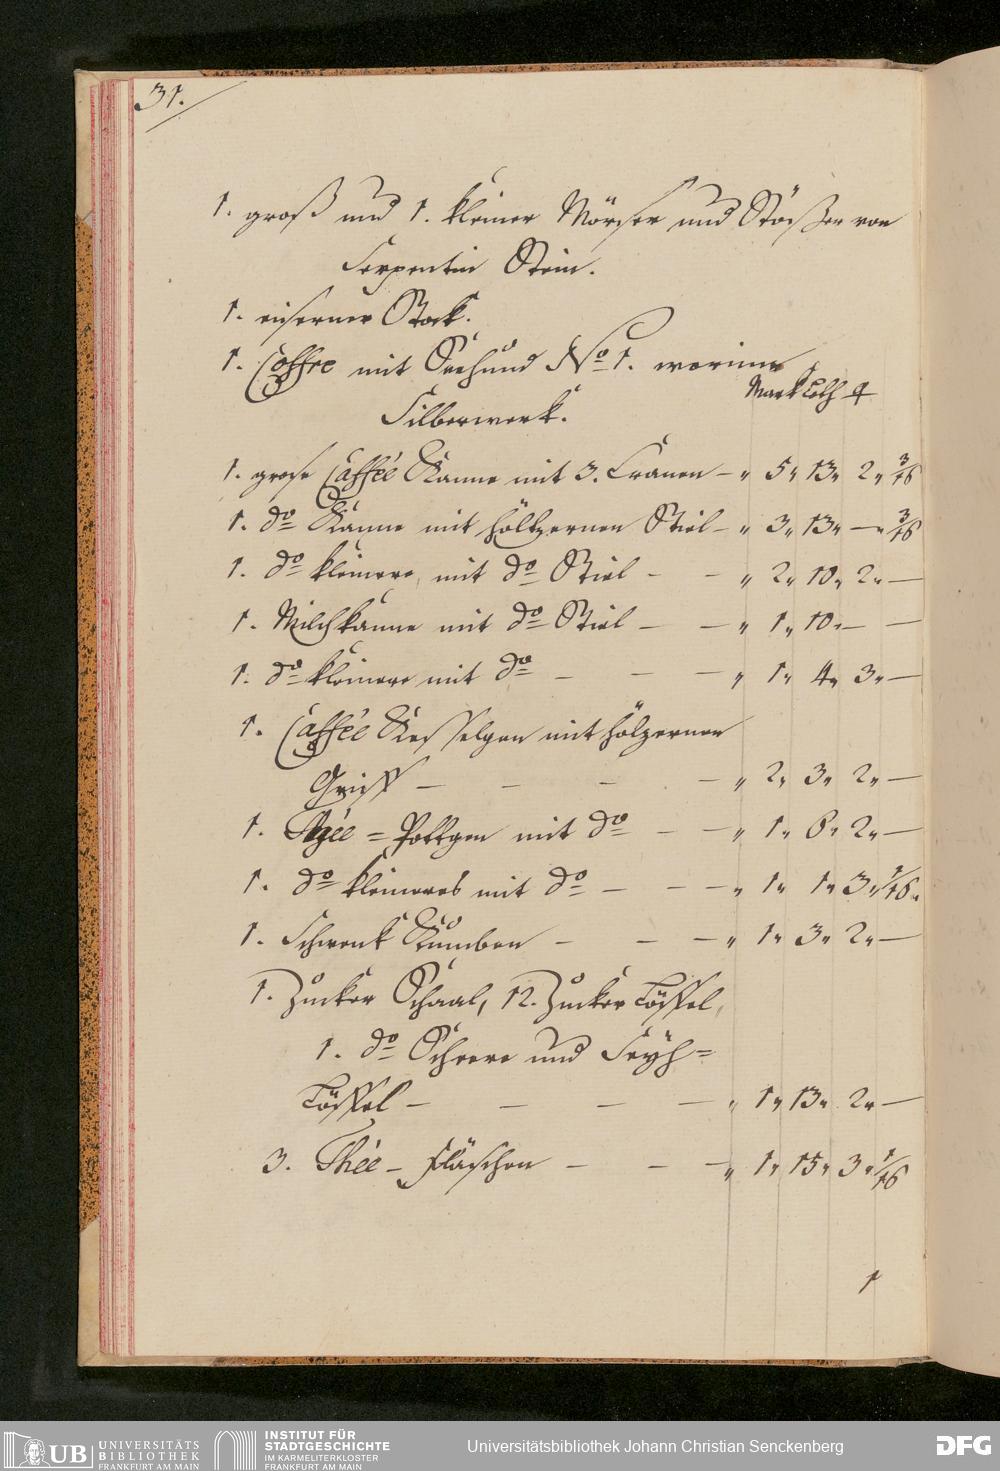 31.
1. groß und 1. kleiner Mörser und Stößer von
Serpentin Stein.
1. eiserner Stock.
1. Coffre mit Seehund No 1. worinn
Mark Loth q
Silberwerk.
1. große Caffée Kanne mit 3. Cranen – " 5 " 13 " 2 " 3/16
1. do Kanne mit höltzernen Stiel – " 3 " 13 " — " 3/16
1. do kleinere, mit do Stiel – – " 2 " 10 " 2 " —
1. Milchkanne mit do Stiel – – " 1 " 10 " — —
1. do kleinere mit do – – – " 1 " 4 " 3 " —
1. Caffée Kesselgen mit hölzernen
Griff – – – – " 2 " 3 " 2 " —
1. Thée = Pottgen mit do – – " 1 " 6 " 2 " —
1. do kleineres mit do – – – " 1 " 1 " 3 " 1/16 "
1. Schwenk Kumben – – – " 1 " 3 " 2 " —
1. Zucker Schaal, 12. Zucker Löffel,
1. do Scheere und Seyh=
Löffel – – – – " 1 " 13 " 2 " —
3. Thée – Fläschen – – – " 1 " 15 " 3 " 1/16
1
UB UNIVERSITÄTS
BIBLIOTHEK
FRANKFURT AM MAIN
INSTITUT FÜR
STADTGESCHICHTE
IM KARMELITERKLOSTER
FRANKFURT AM MAIN
Universitätsbibliothek Johann Christian Senckenberg
DFG